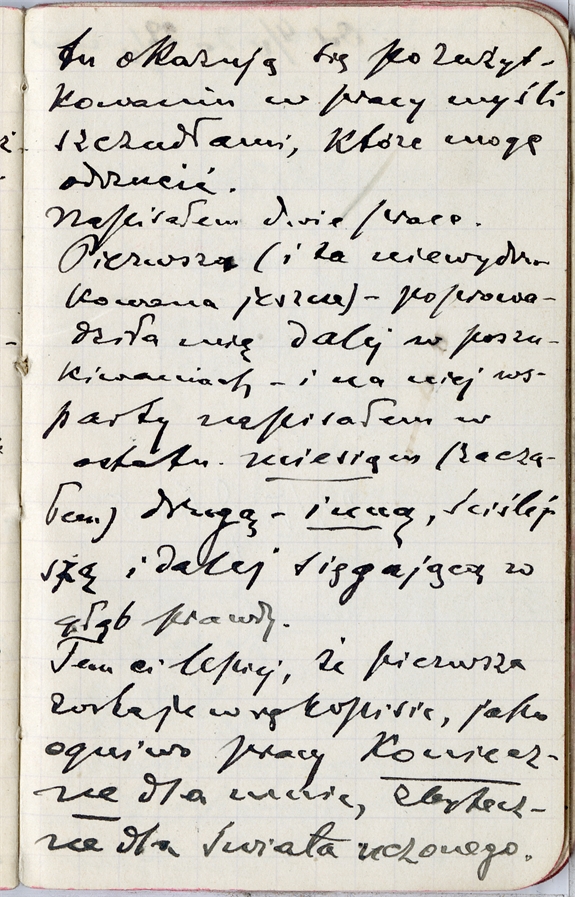 tu okazują się po zużyt-
kowaniu w pracy myśli
szczudłami, które mogę
odrzucić.
Napisałem dwie prace.
Pierwsza (i ta niewydru-
kowana jeszcze) – poprowa-
dziła mię dalej w poszu-
kiwaniach – i na niej ws-
party napisałem w
ostatn. miesiącu (zaczą-
łem) drugą – inną, ściślej
szą i dalej sięgającą w
głąb prawdy.
Tem ci lepiej, że pierwsza
zostaje w rękopisie, jako
ogniwo pracy koniecz-
ne dla mnie, zbytecz-
ne dla świata uczonego.